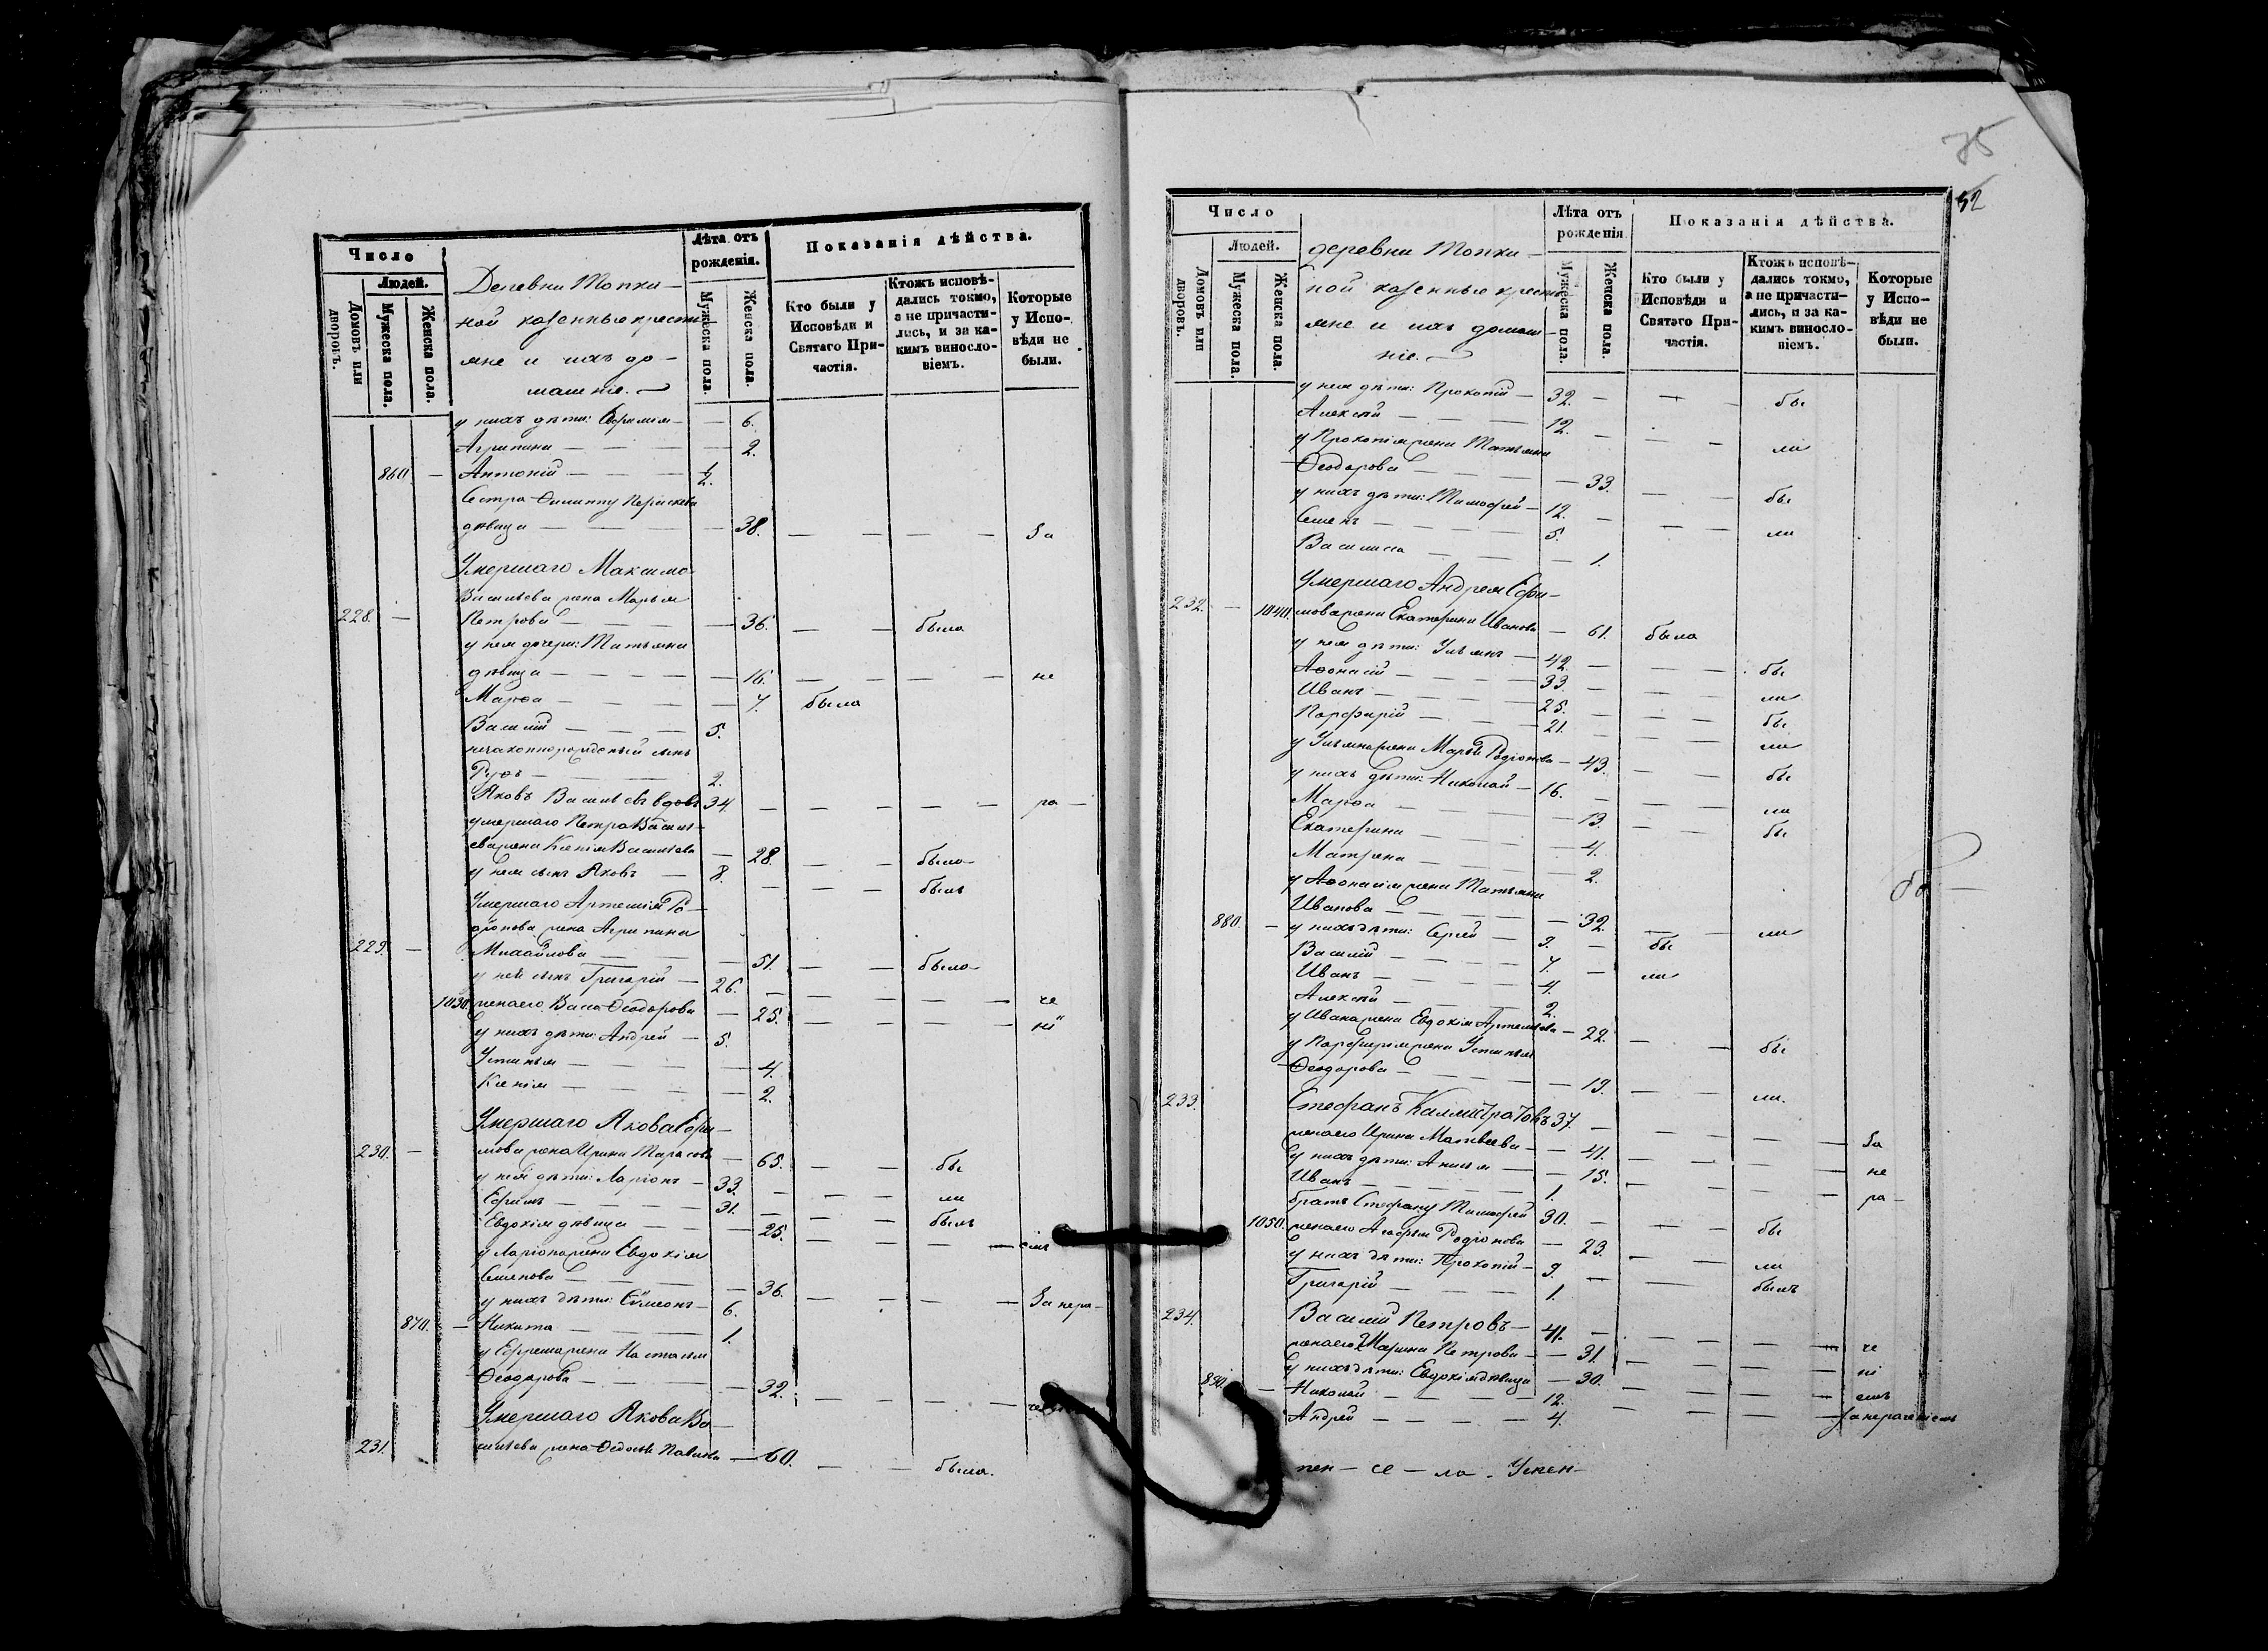 Число
Людей.
Домовъ или дворовъ.
Мужеска пола.
Женска пола.
Деревни Топки-
ной казенные крестья-
мне и ихъ до-
машніе.
Лѣта отъ рожденія.
Мужеска пола.
Женска пола.
Показанія дѣйства.
Кто были у Исповѣди и Святаго Причастія.
Ктожъ исповѣ-
дались токмо,
а не причасти-
лись, и за ка-
кимъ винosло-
віемъ.
Которые
у Испо-
вѣди не
были.
у нихъ дѣти: Евфимія — — 6.
Агрипина — — 2.
860 — Антоній — — ½.
Сестра Филиппу Параскева
дѣвица — — 38. — — — — За
Умершаго Максима
Васильева жена Марья
228. — Петрова — — 36. — — была
у нея дочери: Татьяна
дѣвица — — 16. — — — — не
Марѳа — — 7. была
Василій — — 5.
незаконнорожденый сынъ
Руфъ — — 2.
Яковъ Васильевъ вдовъ 34. — — — — ра —
умершаго Петра Василь-
ева жена Ксенія Васильева — 28. — — была
у нея сынъ Яковъ — 8. — — — былъ
Умершаго Артемія Ро-
діонова жена Агрипина
229. — Михайлова — — 51. — — была
у ней сынъ Григорій — 26. — — — — че
1030. жена его Васса Ѳеодорова — 25. — — — — ні
у нихъ дѣти: Андрей — 5.
Устинья — — 4.
Ксенія — — 2.
Умершаго Якова Ефи-
230. — мова жена Ирина Тарасова — 65. — — бы
у ней дѣти: Ларіонъ — 33. — — — ли
Ефимъ — — 31. — — — былъ
Евдокія дѣвица — — 25. — — — — емъ
у Ларіона жена Евдокія
Семенова — — 36. — — — — За нера-
у нихъ дѣти: Симеонъ — 6.
870. — Никита — — 1.
у Ефрема жена Настасья
Ѳеодорова — — 32. — — — —
Умершаго Якова Ва-
231. сильева жена Ѳедосья Павлова — 60. — — была.
75
52
Число
Людей.
Домовъ или дворовъ.
Мужеска пола.
Женска пола.
деревни Топки-
ной казенные кресть-
мне и ихъ домаш-
ніе. —
Лѣта отъ рожденія
Мужеска пола.
Женска пола.
Показанія дѣйства.
Кто были у
Исповѣди и
Святаго При-
частія.
Ктожъ исповѣ-
дались токмо,
а не причасти-
лись, и за ка-
кимъ виносло-
віемъ.
Которые
у Испо-
вѣди не
были.
у нея дѣти: Прокопій — 32. — — — бы
Алексѣй — — 12. — — — ли
у Прокопія жена Татьяна
Ѳеодорова — — 33. — — бы
у нихъ дѣти: Тимофей — 12. — — — ли
Семенъ — — 5.
Василиса — — 1.
Умершаго Андрея Ефи-
232. — 1040. мова жена Екатерина Иванова — 61. была
у нея дѣти: Ульянъ — 42. — — — бы
Аѳонасій — — 33. — — — ли
Иванъ — — 25. — — — бы
Порфирій — — 21. — — — ли
у Ульяна жена Марья Родіонова — 43. — — бы
у нихъ дѣти: Николай — 16. — — — ли
Марѳа — — 13. — — бы
Екатерина — — 4.
Матрена — — 2.
у Аѳонасія жена Татьяна
Иванова — — 32. — — ли
880. — у нихъ дѣти: Сергѣй — 9. — бы
Василій — — 7. — ли
Иванъ — — 4.
Алексѣй — — 2.
у Ивана жена Евдокія Артемьева — 22. — — бы
у Порфирія жена Устинья
Ѳеодорова — — 19. — — ли.
233. Стефанъ Каллистратовъ 37. — — — — За
жена его Ирина Матвѣева — 41. — — — — не
у нихъ дѣти: Анисья — 15. — — — — ра —
Иванъ — — 1.
братъ Стефану Тимофей 30. — — — бы
1050. жена его Агафья Родіонова — 23. — — ли
у нихъ дѣти: Прокопій — 9. — — былъ
Григорій — — 1.
234. Василій Петровъ — 41. — — — — че
жена его Марина Петрова — 31. — — — — ні
у нихъ дѣти: Евдокія дѣвица — 30. — — — — емъ
890. — Николай — — 12. — — — — За нераченіемъ
Андрей — — 4.